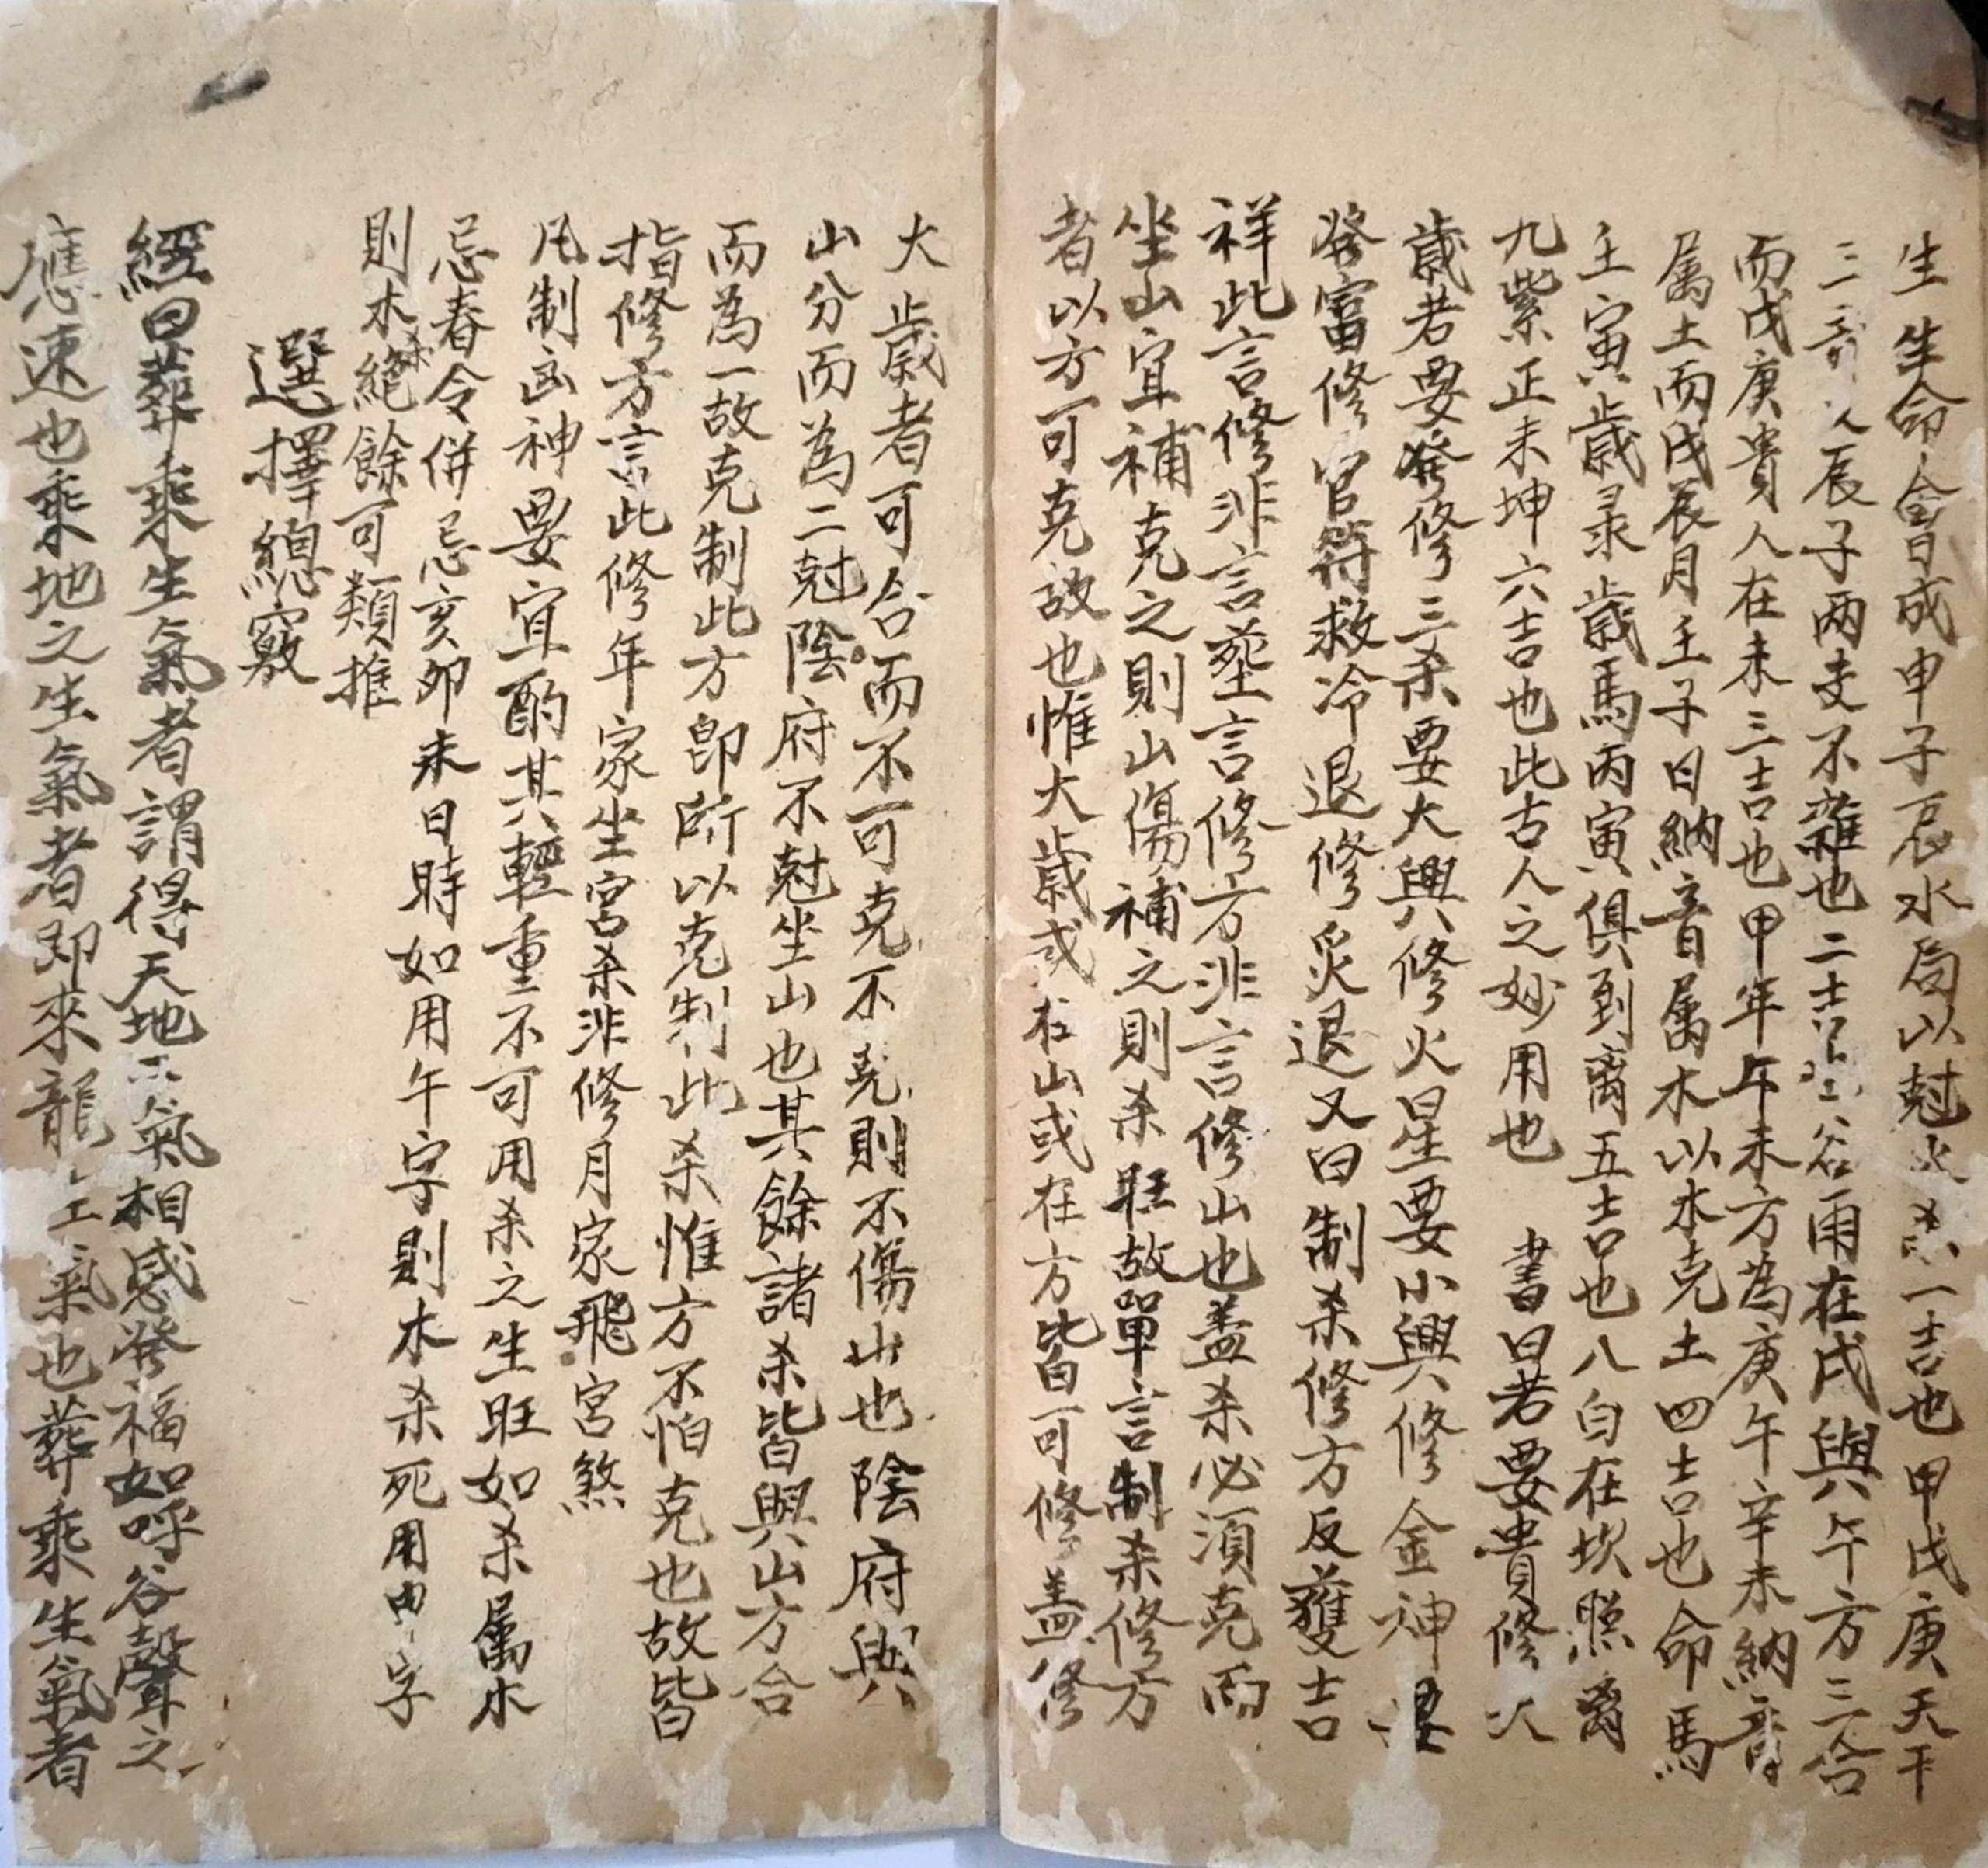 生生命合日成申子辰水局以尅火杀一吉也甲戊庚天干
三辰子两支不雜也二吉谷雨在戌與午方三合
而戊庚貴人在未三吉也甲年年未方為庚午辛未納音
属土而戊辰月壬子日納音属木以木克土四吉也命馬
壬寅歲录歲馬丙寅俱到离五吉也八白在坎照离
九紫正未坤六吉也此古人之妙用也　書曰若要貴修大
歲若要發修三杀要大興修火星要小興修金神要
發富修官符救冷退修災退又曰制杀修方反蕿吉
祥此言修非言塟言修方非言修山也盖杀必須克而
坐山宜補克之則山傷補之則杀旺故單言制杀修方
者以方可克故也惟大歲或在山或在方皆可修盖修
大歲者可合而不可克不克則不傷山也陰府與
山分而為二尅陰府不尅坐山也其餘諸杀皆與山方合
而為一故克制此方卽所以克制此杀惟方不怕克也故皆
指修方言此修年家坐宫杀非修月家飛宮煞
凡制凶神要宜酌其輕重不可用杀之生旺如杀属木
忌春令併忌亥卯未日時如用午字則木杀死用申字
則木杀絶餘可類推
選擇總竅
經曰葬乘生氣者謂得天地氣相感發福如呼谷聲之
應速也乘地之生氣者即來龍生氣也葬乘生氣者